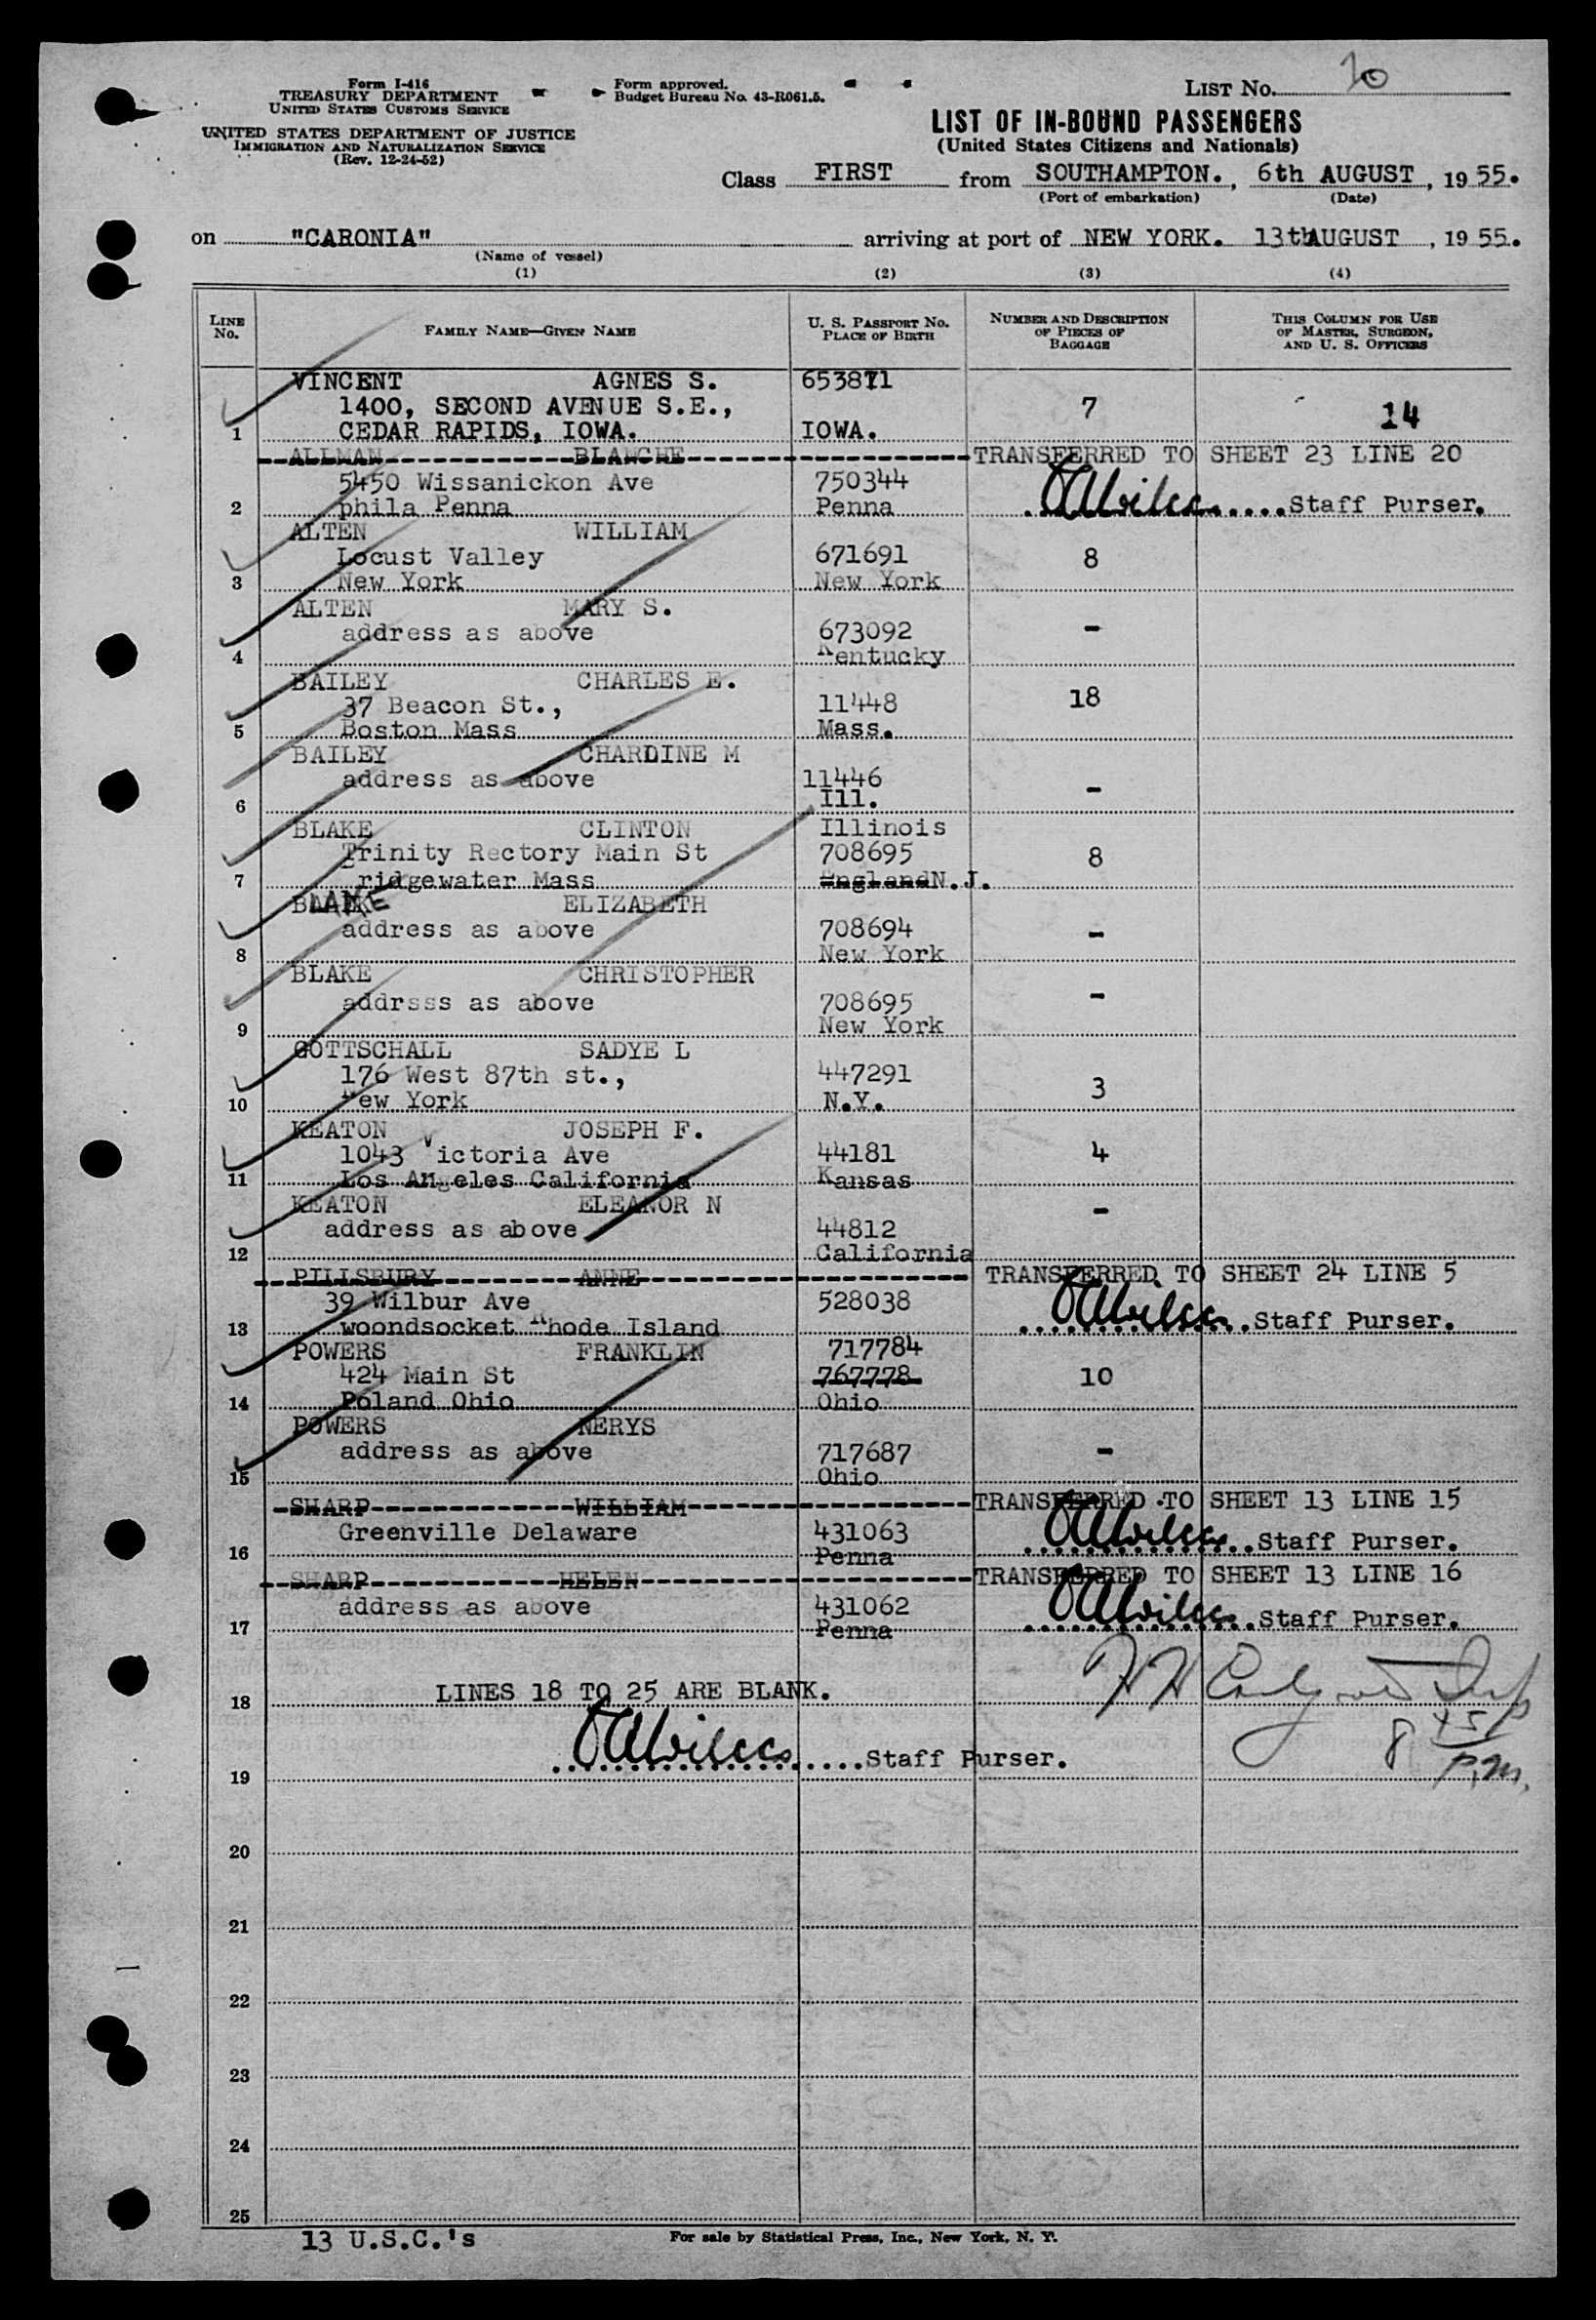 Form I-416
TREASURY DEPARTMENT
UNITED STATES CUSTOMS SERVICE
UNITED STATES DEPARTMENT OF JUSTICE
IMMIGRATION AND NATURALIZATION SERVICE
(Rev. 12-24-52)
Form approved.
Budget Bureau No. 43-R061.5.
LIST No.
LIST OF IN-BOUND PASSENGERS
(United States Citizens and Nationals)
Class FIRST from SOUTHAMPTON. , 6th AUGUST , 19 55.
(Port of embarkation) (Date)
on "CARONIA" arriving at port of NEW YORK. 13th AUGUST , 19 55.
(Name of vessel)
(1) (2) (3) (4)
LINE No. FAMILY NAME—GIVEN NAME U. S. PASSPORT NO. PLACE OF BIRTH NUMBER AND DESCRIPTION OF PIECES OF BAGGAGE THIS COLUMN FOR USE OF MASTER, SURGEON, AND U. S. OFFICERS
VINCENT AGNES S. 653871
1400, SECOND AVENUE S.E., 7 14
1 CEDAR RAPIDS, IOWA. IOWA.
ALLMAN BLANCHE TRANSFERRED TO SHEET 23 LINE 20
5450 Wissanickon Ave 750344
2 phila Penna Penna Staff Purser.
ALTEN WILLIAM
Locust Valley 671691 8
3 New York New York
ALTEN MARY S.
address as above 673092 -
4 Kentucky
BAILEY CHARLES E.
37 Beacon St., 11448 18
5 Boston Mass Mass.
BAILEY CHARDINE M
address as above 11446 -
6 Ill.
BLAKE CLINTON Illinois
Trinity Rectory Main St 708695 8
7 ridgewater Mass England N.J.
BLAKE ELIZABETH
address as above 708694 -
8 New York
BLAKE CHRISTOPHER
addrsss as above 708695 -
9 New York
GOTTSCHALL SADYE L
176 West 87th st., 447291 3
10 New York N.Y.
KEATON JOSEPH F.
1043 Victoria Ave 44181 4
11 Los Angeles California Kansas
KEATON ELEANOR N
address as above 44812 -
12 California
PILLSBURY ANNE TRANSFERRED TO SHEET 24 LINE 5
39 Wilbur Ave 528038
13 woondsocket Rhode Island Staff Purser.
POWERS FRANKLIN 717784
424 Main St 767778 10
14 Poland Ohio Ohio
POWERS NERYS
address as above 717687 -
15 Ohio
SHARP WILLIAM TRANSFERRED TO SHEET 13 LINE 15
Greenville Delaware 431063
16 Penna Staff Purser.
SHARP HELEN TRANSFERRED TO SHEET 13 LINE 16
address as above 431062
17 Penna Staff Purser.
18 LINES 18 TO 25 ARE BLANK.
8 45 p.m.
19 Staff Purser.
20
21
22
23
24
25
13 U.S.C.'s For sale by Statistical Press, Inc., New York, N. Y.